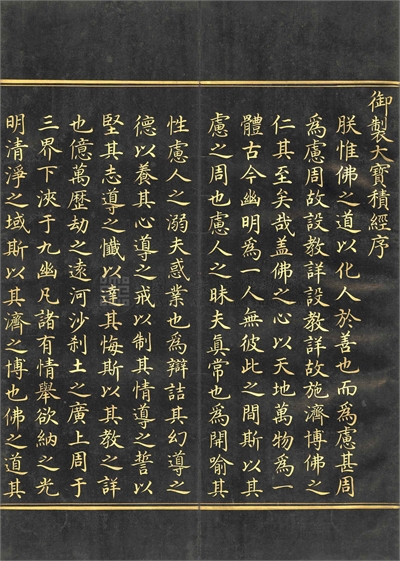 御製大寶積經序
朕惟佛之道以化人於善也而為慮甚周
為慮周故設教詳設教詳故施濟博佛之
仁其至矣哉蓋佛之心以天地萬物為一
體古今幽明為一人無彼此之間斯以其
慮之周也慮人之昧夫真常也為開喻其
性慮人之溺夫惑業也為辯詰其幻導之
德以養其心導之戒以制其情導之誓以
堅其志導之懺以達其悔斯以其教之詳
也億萬歷劫之遠河沙刹土之廣上周于
三界下浹于九幽凡諸有情舉欲納之光
明清淨之域斯以其濟之博也佛之道其